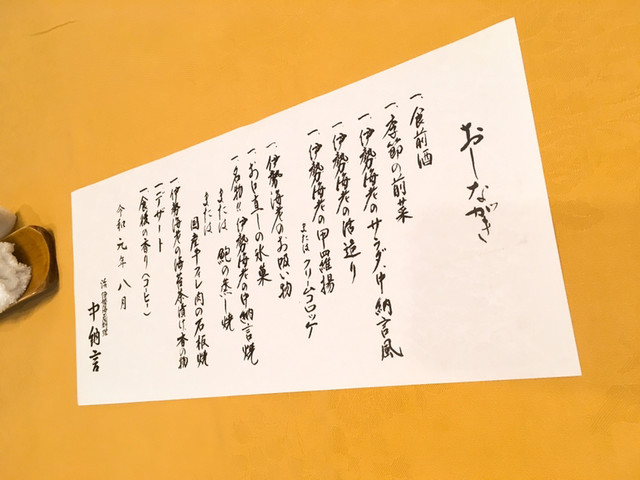 おしながき
一、食前酒
一、季節の前菜
一、伊勢海老のサラダ、中納言風
一、伊勢海老の活造り
一、伊勢海老の甲羅揚
または クリームコロッケ
一、伊勢海老のお吸い物
一、お口直しの氷菓
一、名物!!伊勢海老の中納言焼
または 鮑の蒸し焼
または 国産牛ヘレ肉の石板焼
一、伊勢海老の海苔茶漬け、香の物
一、デザート
一、食後の香り(コーヒー)
令和元年八月
活伊勢海老料理
中納言